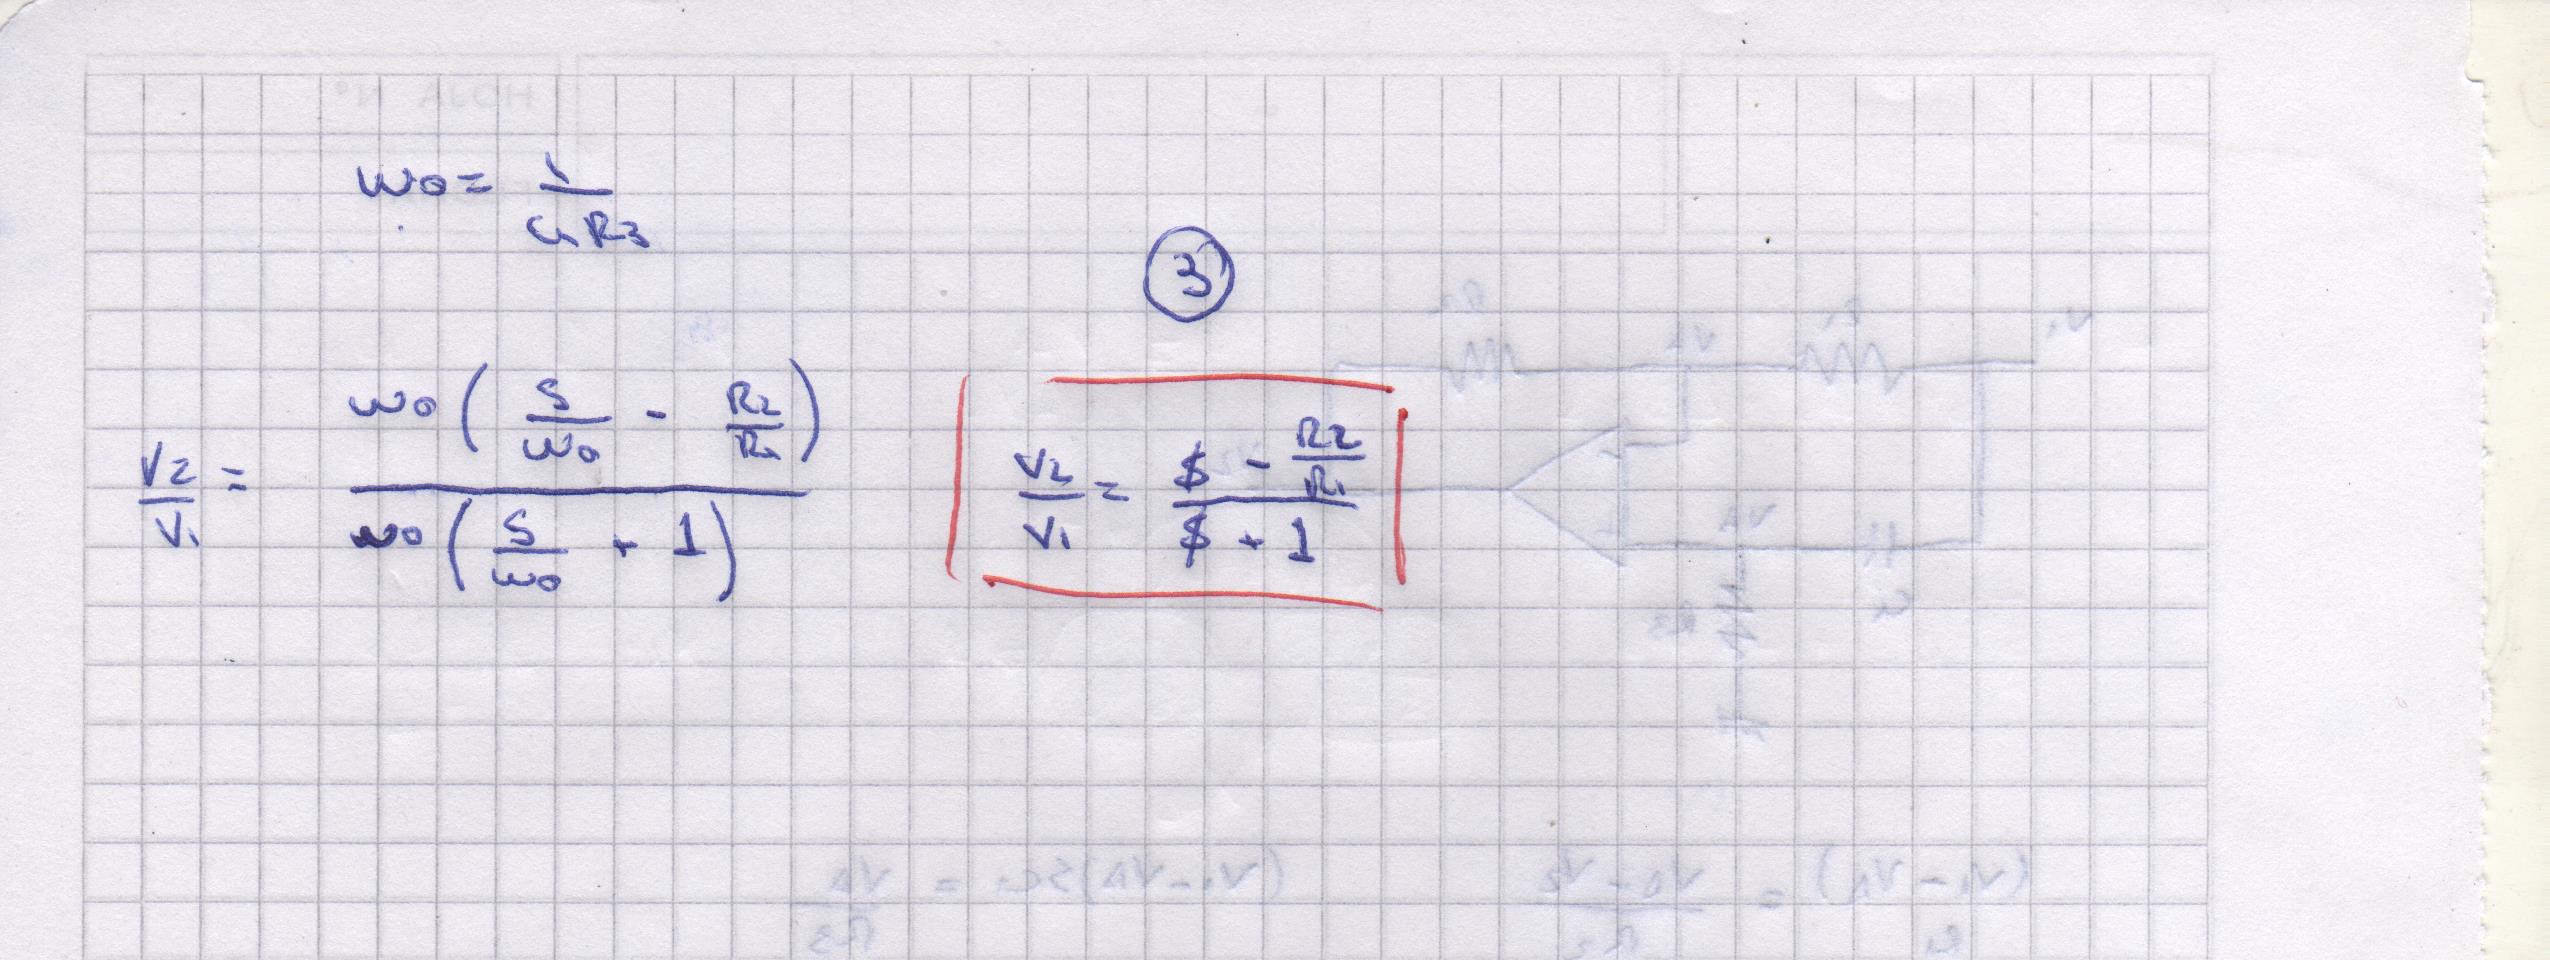 ω0 = 1 / C1 R3
3
V2 / V1 = ω0 ( S / ω0 - R2 / R1 ) / ω0 ( S / ω0 + 1 )
V2 / V1 = $ - R2 / R1 / $ + 1